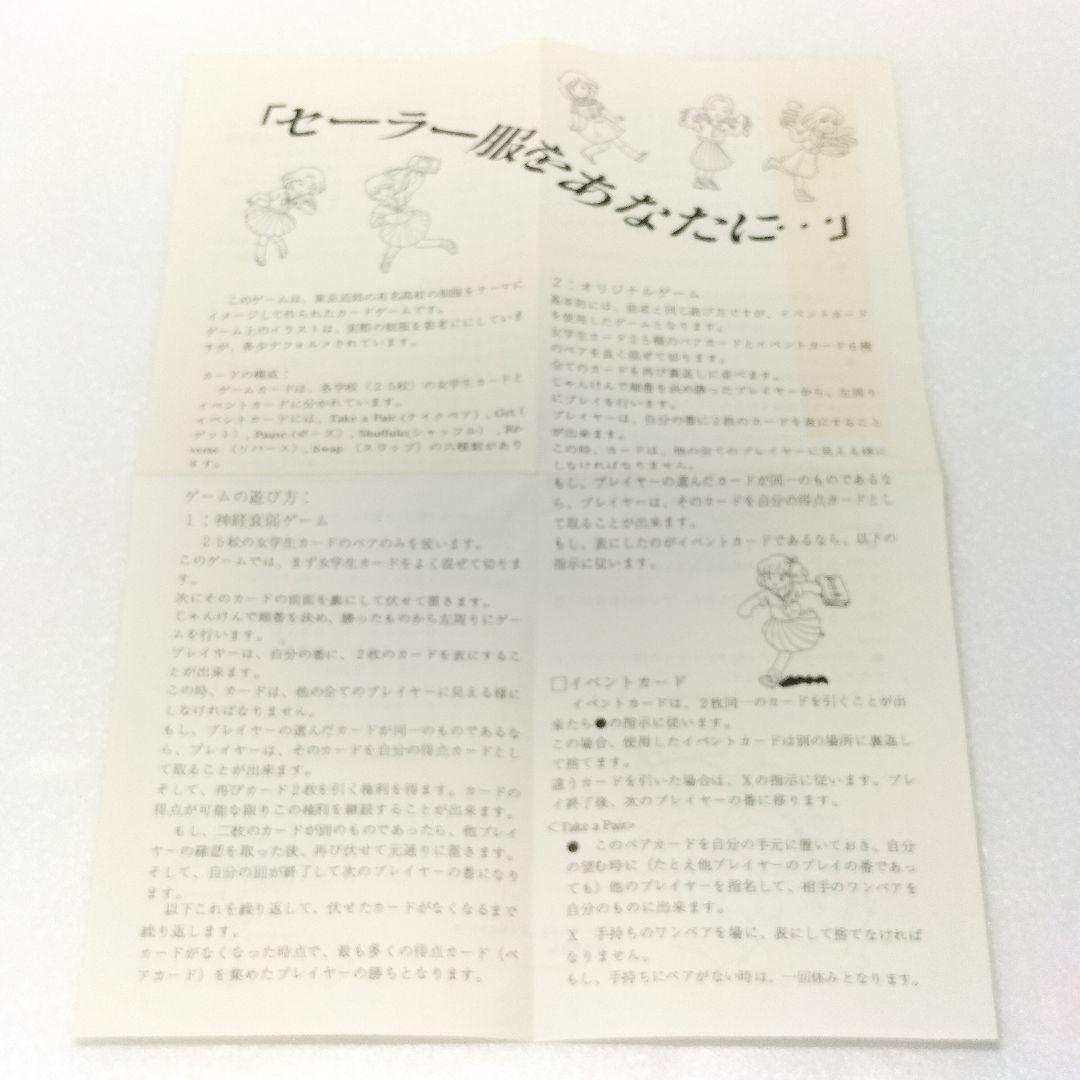 「セーラー服をあなたに…」
このゲームは、東京近郊の有名高校の制服をテーマに
イメージして作られたカードゲームです。
ゲーム上のイラストは、実際の制服を参考ににしていま
すが、多少デフォルメされています。
カードの構成：
ゲームカードは、各学校（２５校）の女学生カードと
イベントカードに分かれています。
イベントカードには、Take a Pair（テイクペア）, Get（
ゲット）, Pause（ポーズ）, Shuffule（シャッフル）, Re-
verse （リバース）, Swap （スワップ）の六種類があり
ます。
ゲームの遊び方：
１：神経衰弱ゲーム
２５校の女学生カードのペアのみを使います。
このゲームでは、まず女学生カードをよく混ぜて切りま
す。
次にそのカードの前面を裏にして伏せて置きます。
じゃんけんで順番を決め、勝ったものから左周りにゲー
ムを行います。
プレイヤーは、自分の番に、２枚のカードを表にするこ
とが出来ます。
この時、カードは、他の全てのプレイヤーに見える様に
しなければなりません。
もし、プレイヤーの選んだカードが同一のものであるな
ら、プレイヤーは、そのカードを自分の得点カードとし
て取ることが出来ます。
そして、再びカード２枚を引く権利を得ます。カードの
得点が可能な限りこの権利を継続することが出来ます。
もし、二枚のカードが別のものであったら、他プレイ
ヤーの確認を取った後、再び伏せて元通りに置きます。
そして、自分の回が終了して次のプレイヤーの番になり
ます。
以下これを繰り返して、伏せたカードがなくなるまで
繰り返します。
カードがなくなった時点で、最も多くの得点カード（ペ
アカード）を集めたプレイヤーの勝ちとなります。
２：オリジナルゲーム
基本的には、前者と同じ遊び方ですが、イベントカード
を使用したゲームとなります。
女学生カード２５種のペアカードとイベントカード６種
のペアを良く混ぜて切ります。
全てのカードを再び裏返しに並べます。
じゃんけんで順番を決め勝ったプレイヤーから、左周り
にプレイを行います。
プレイヤーは、自分の番に２枚のカードを表にすること
が出来ます。
この時、カードは、他の全てのプレイヤーに見える様に
しなければなりません。
もし、プレイヤーの選んだカードが同一のものであるな
ら、プレイヤーは、そのカードを自分の得点カードとし
て取ることが出来ます。
もし、表にしたのがイベントカードであるなら、以下の
指示に従います。
□イベントカード
イベントカードは、２枚同一のカードを引くことが出
来たら●の指示に従います。
この場合、使用したイベントカードは別の場所に裏返し
て捨てます。
違うカードを引いた場合は、Xの指示に従います。プレ
イ終了後、次のプレイヤーの番に移ります。
<Take a Pair>
● このペアカードを自分の手元に置いておき、自分
の望む時に（たとえ他プレイヤーのプレイの番であっ
ても）他のプレイヤーを指名して、相手のワンペアを
自分のものに出来ます。
X 手持ちのワンペアを場に、表にして捨てなければ
なりません。
もし、手持ちにペアがない時は、一回休みとなります。